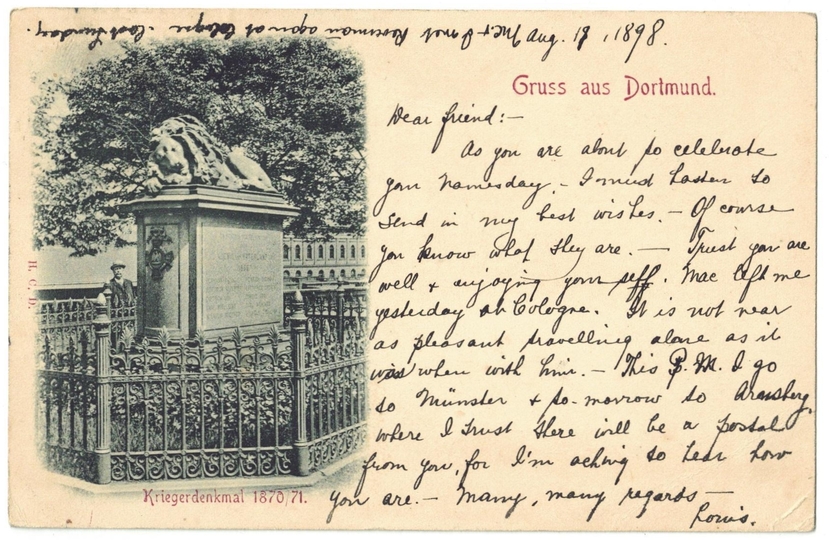 Aug. 18, 1898.
Mc. & I met Roseman again at Cologne last Sunday.
Gruss aus Dortmund.
Dear friend:-
As you are about to celebrate
your namesday, - I must hasten to
send in my best wishes. - Of course
you know what they are. - Trust you are
well & enjoying your self. Mac left me
yesterday at Cologne. It is not near
as pleasant travelling alone as it
was when with him. - This P.M. I go
to Münster & to-morrow to Arnsberg,
where I trust there will be a postal
from you, for I'm aching to hear how
you are. - Many, many regards -
Louis.
H. C. D.
Kriegerdenkmal 1870/71.